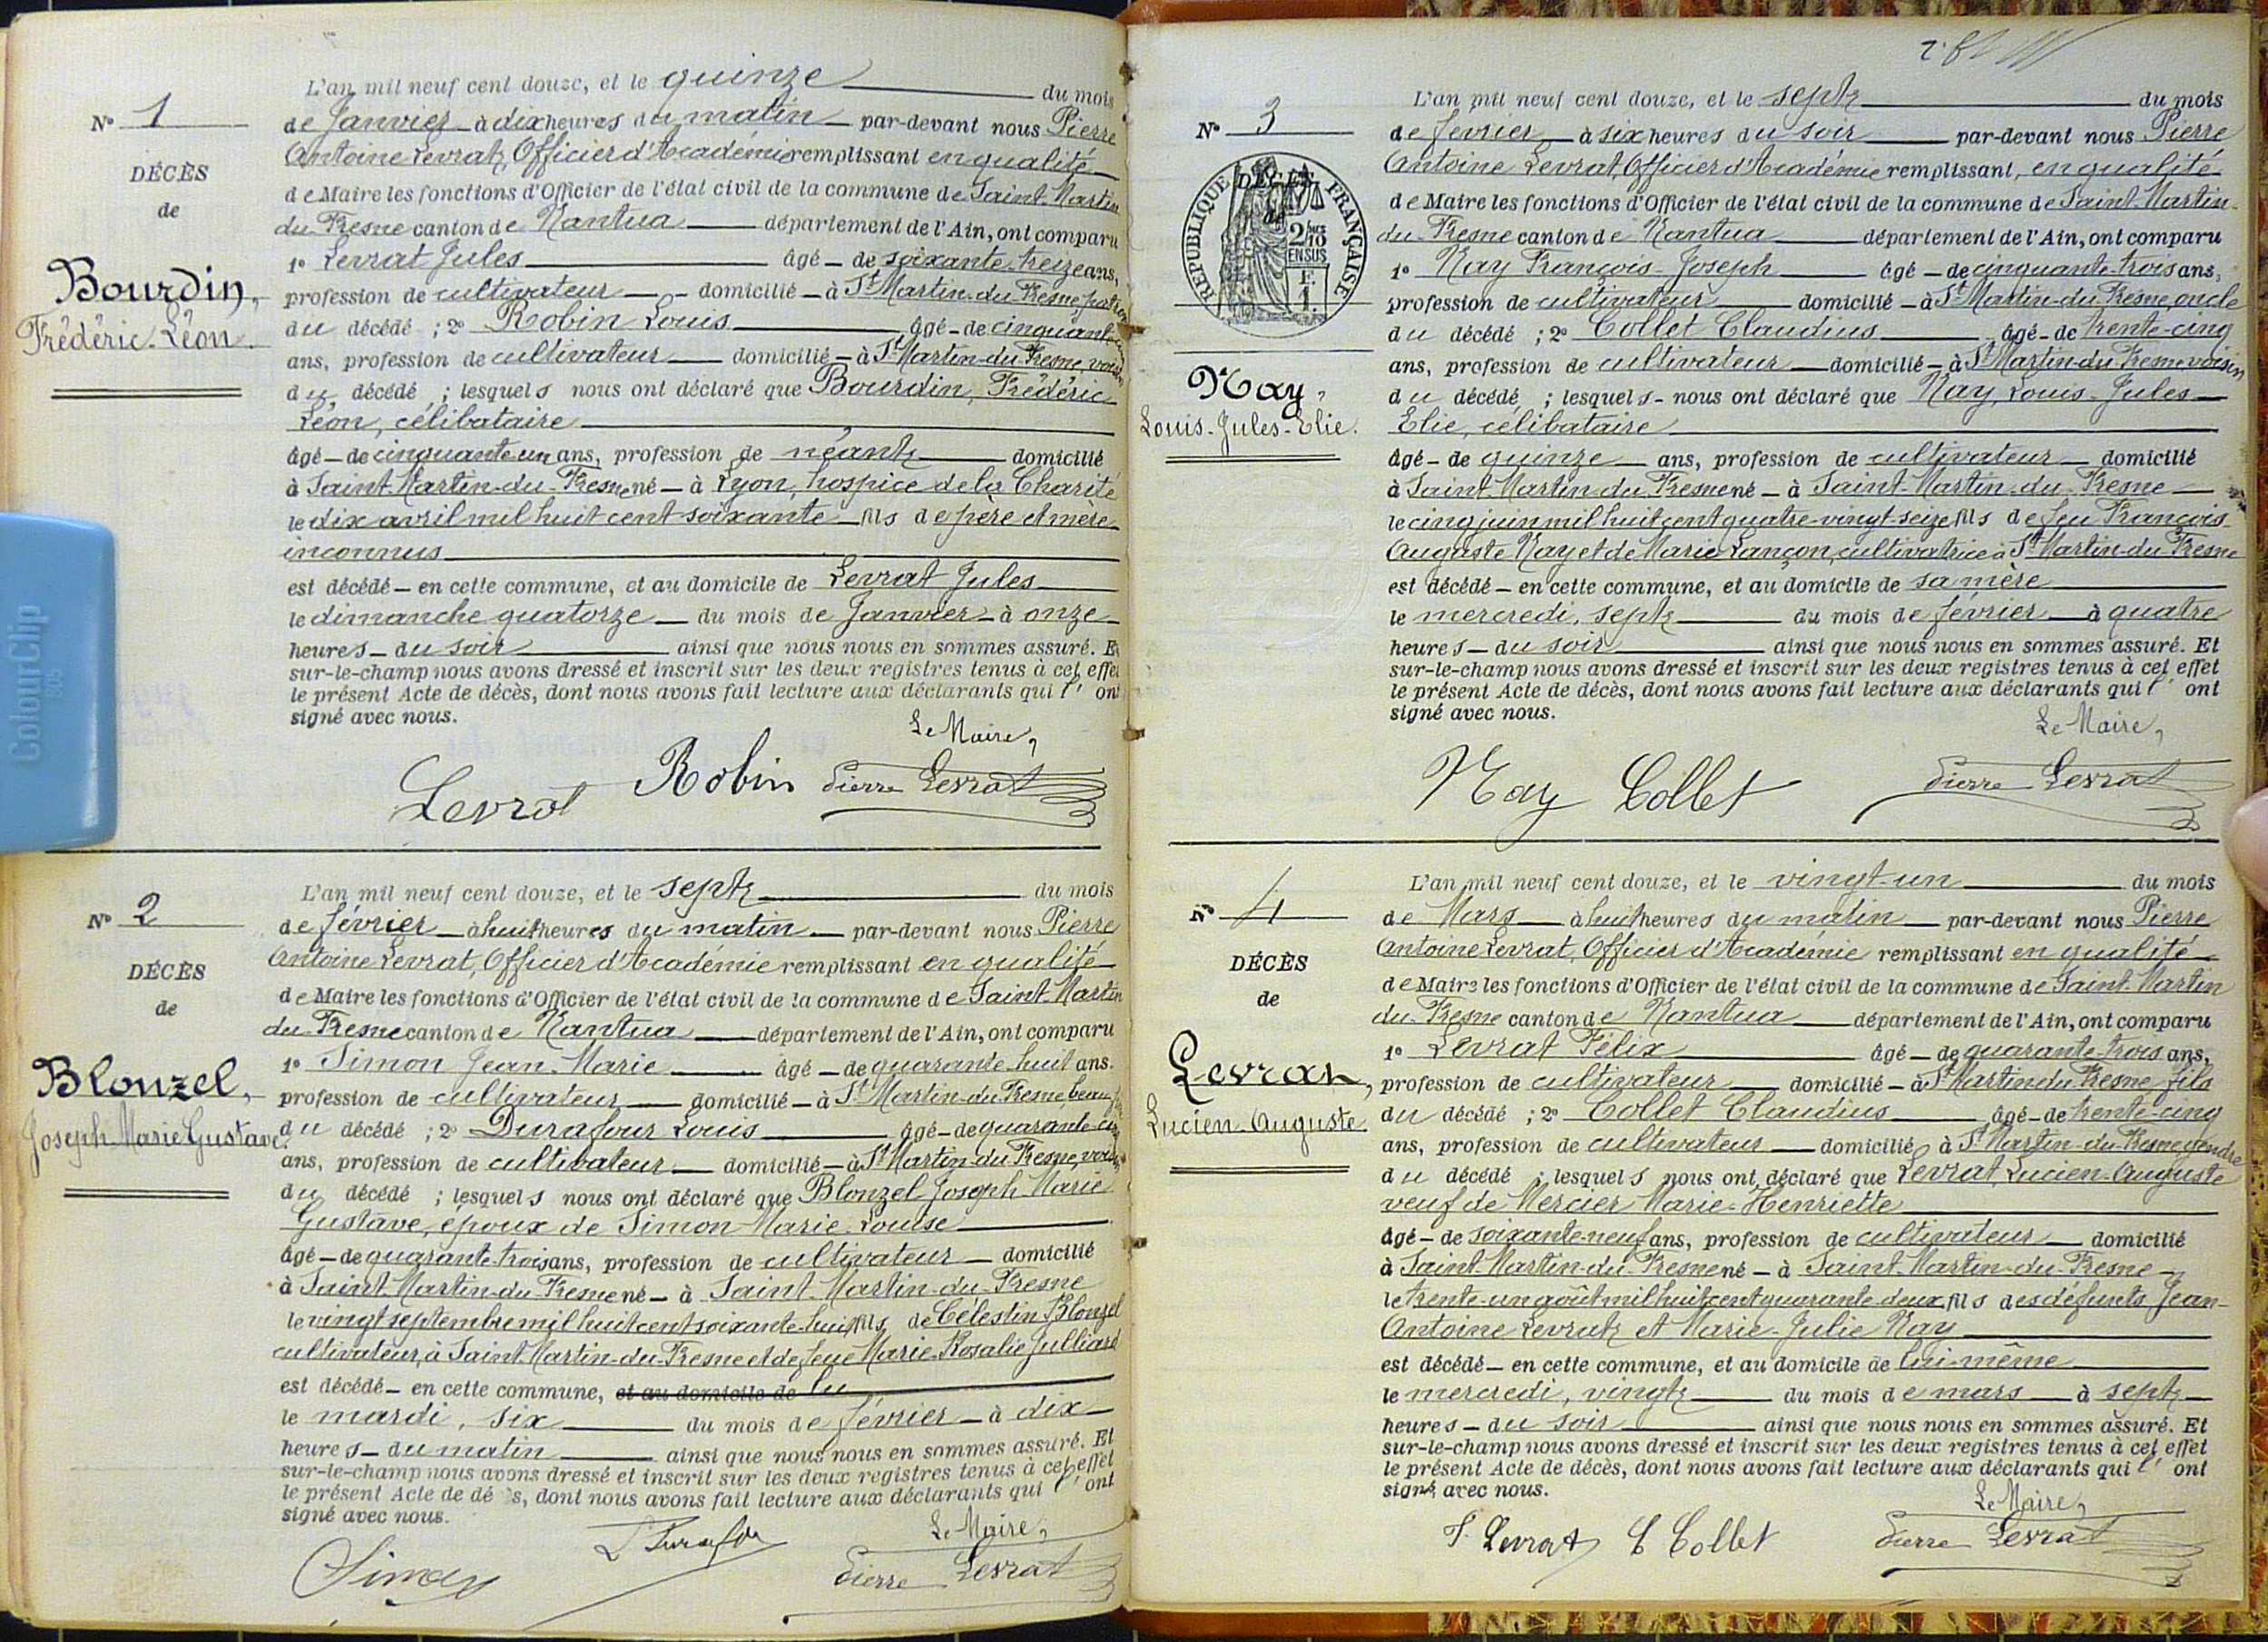 N° 1
DÉCÈS
de
Bourdin,
Frédéric-Léon.
L'an mil neuf cent douze, et le quinze du mois
de Janvier à dix heures du matin par-devant nous Pierre
Antoine Levrat, Officier d'Académie remplissant en qualité
de Maire les fonctions d'Officier de l'état civil de la commune de Saint-Martin
du-Fresne canton de Nantua département de l'Ain, ont comparu
1° Levrat Jules âgé - de soixante-treize ans,
profession de cultivateur domicilié - à St Martin-du-Fresne, patron
du décédé ; 2° Robin Louis âgé - de cinquante
ans, profession de cultivateur domicilié - à St Martin-du-Fresne, voisin
du décédé ; lesquels nous ont déclaré que Bourdin, Frédéric
Léon, célibataire
âgé - de cinquante un ans, profession de néant domicilié
à Saint-Martin-du-Fresne né - à Lyon, hospice de la Charité
le dix avril mil huit cent soixante fils de père et mère
inconnus
est décédé - en cette commune, et au domicile de Levrat Jules
le dimanche quatorze du mois de Janvier à onze
heures - du soir ainsi que nous nous en sommes assuré. Et
sur-le-champ nous avons dressé et inscrit sur les deux registres tenus à cet effet
le présent Acte de décès, dont nous avons fait lecture aux déclarants qui l' ont
signé avec nous.
Le Maire,
Levrat Robin Pierre Levrat
N° 2
DÉCÈS
de
Blonzel,
Joseph Marie Gustave.
L'an mil neuf cent douze, et le sept du mois
de février à huit heures du matin par-devant nous Pierre
Antoine Levrat, Officier d'Académie remplissant en qualité
de Maire les fonctions d'Officier de l'état civil de la commune de Saint-Martin
du-Fresne canton de Nantua département de l'Ain, ont comparu
1° Simon Jean-Marie âgé - de quarante-huit ans.
profession de cultivateur domicilié - à St Martin-du-Fresne, beau
du décédé ; 2° Durafour Louis âgé - de quarante-cinq
ans, profession de cultivateur domicilié - à St Martin-du-Fresne, voisin
du décédé ; lesquels nous ont déclaré que Blonzel Joseph Marie
Gustave, époux de Simon Marie-Louise
âgé - de quarante-trois ans, profession de cultivateur domicilié
à Saint-Martin-du-Fresne né - à Saint-Martin-du-Fresne
le vingt septembre mil huit cent soixante-huit fils de Célestin Blonzel
cultivateur, à Saint-Martin-du-Fresne et de feue Marie-Rosalie Julliard
est décédé - en cette commune, et au domicile de lu
le mardi, six du mois de février à dix
heures - du matin ainsi que nous nous en sommes assuré. Et
sur-le-champ nous avons dressé et inscrit sur les deux registres tenus à cet effet
le présent Acte de dé s, dont nous avons fait lecture aux déclarants qui l' ont
signé avec nous.
Le Maire,
Simon L Durafour Pierre Levrat
N° 3
DÉCÈS
de
RÉPUBLIQUE FRANÇAISE
2/10
EN SUS
Nay,
Louis-Jules-Elie.
L'an mil neuf cent douze, et le sept du mois
de février à six heures du soir par-devant nous Pierre
Antoine Levrat, Officier d'Académie remplissant, en qualité
de Maire les fonctions d'Officier de l'état civil de la commune de Saint-Martin-
du-Fresne canton de Nantua département de l'Ain, ont comparu
1° Nay François-Joseph âgé - de cinquante-trois ans,
profession de cultivateur domicilié - à St Martin-du-Fresne, oncle
du décédé ; 2° Collet Claudius âgé - de trente-cinq
ans, profession de cultivateur domicilié - à St Martin-du-Fresne voisin
du décédé ; lesquels - nous ont déclaré que Nay, Louis-Jules
Elie, célibataire
âgé - de quinze ans, profession de cultivateur domicilié
à Saint-Martin-du-Fresne né - à Saint-Martin-du-Fresne
le cinq juin mil huit cent quatre-vingt-seize fils de feu François
Auguste Nay et de Marie Lançon, cultivatrice à St Martin-du-Fresne
est décédé - en cette commune, et au domicile de sa mère
le mercredi, sept du mois de février à quatre
heures - du soir ainsi que nous nous en sommes assuré. Et
sur-le-champ nous avons dressé et inscrit sur les deux registres tenus à cet effet
le présent Acte de décès, dont nous avons fait lecture aux déclarants qui l' ont
signé avec nous.
Le Maire,
Nay Collet Pierre Levrat
N° 4
DÉCÈS
de
Levrat,
Lucien-Auguste.
L'an mil neuf cent douze, et le vingt-un du mois
de Mars à huit heures du matin par-devant nous Pierre
Antoine Levrat, Officier d'Académie remplissant en qualité
de Maire les fonctions d'Officier de l'état civil de la commune de Saint-Martin
du-Fresne canton de Nantua département de l'Ain, ont comparu
1° Levrat Félix âgé - de quarante-trois ans,
profession de cultivateur domicilié - à St Martin du Fresne, fils
du décédé ; 2° Collet Claudius âgé - de trente-cinq
ans, profession de cultivateur domicilié à St Martin-du-Fresne, gendre
du décédé ; lesquels nous ont déclaré que Levrat, Lucien-Auguste
veuf de Mercier Marie-Henriette
âgé - de soixante-neuf ans, profession de cultivateur domicilié
à Saint-Martin-du-Fresne né - à Saint-Martin-du-Fresne
le trente-un août mil huit cent quarante-deux, fils des défunts Jean-
Antoine Levrat et Marie-Julie Nay
est décédé - en cette commune, et au domicile de lui-même
le mercredi, vingt du mois de mars à sept
heures - du soir ainsi que nous nous en sommes assuré. Et
sur-le-champ nous avons dressé et inscrit sur les deux registres tenus à cet effet
le présent Acte de décès, dont nous avons fait lecture aux déclarants qui l' ont
signé avec nous.
Le Maire,
F. Levrat C Collet Pierre Levrat
ColourClip
805